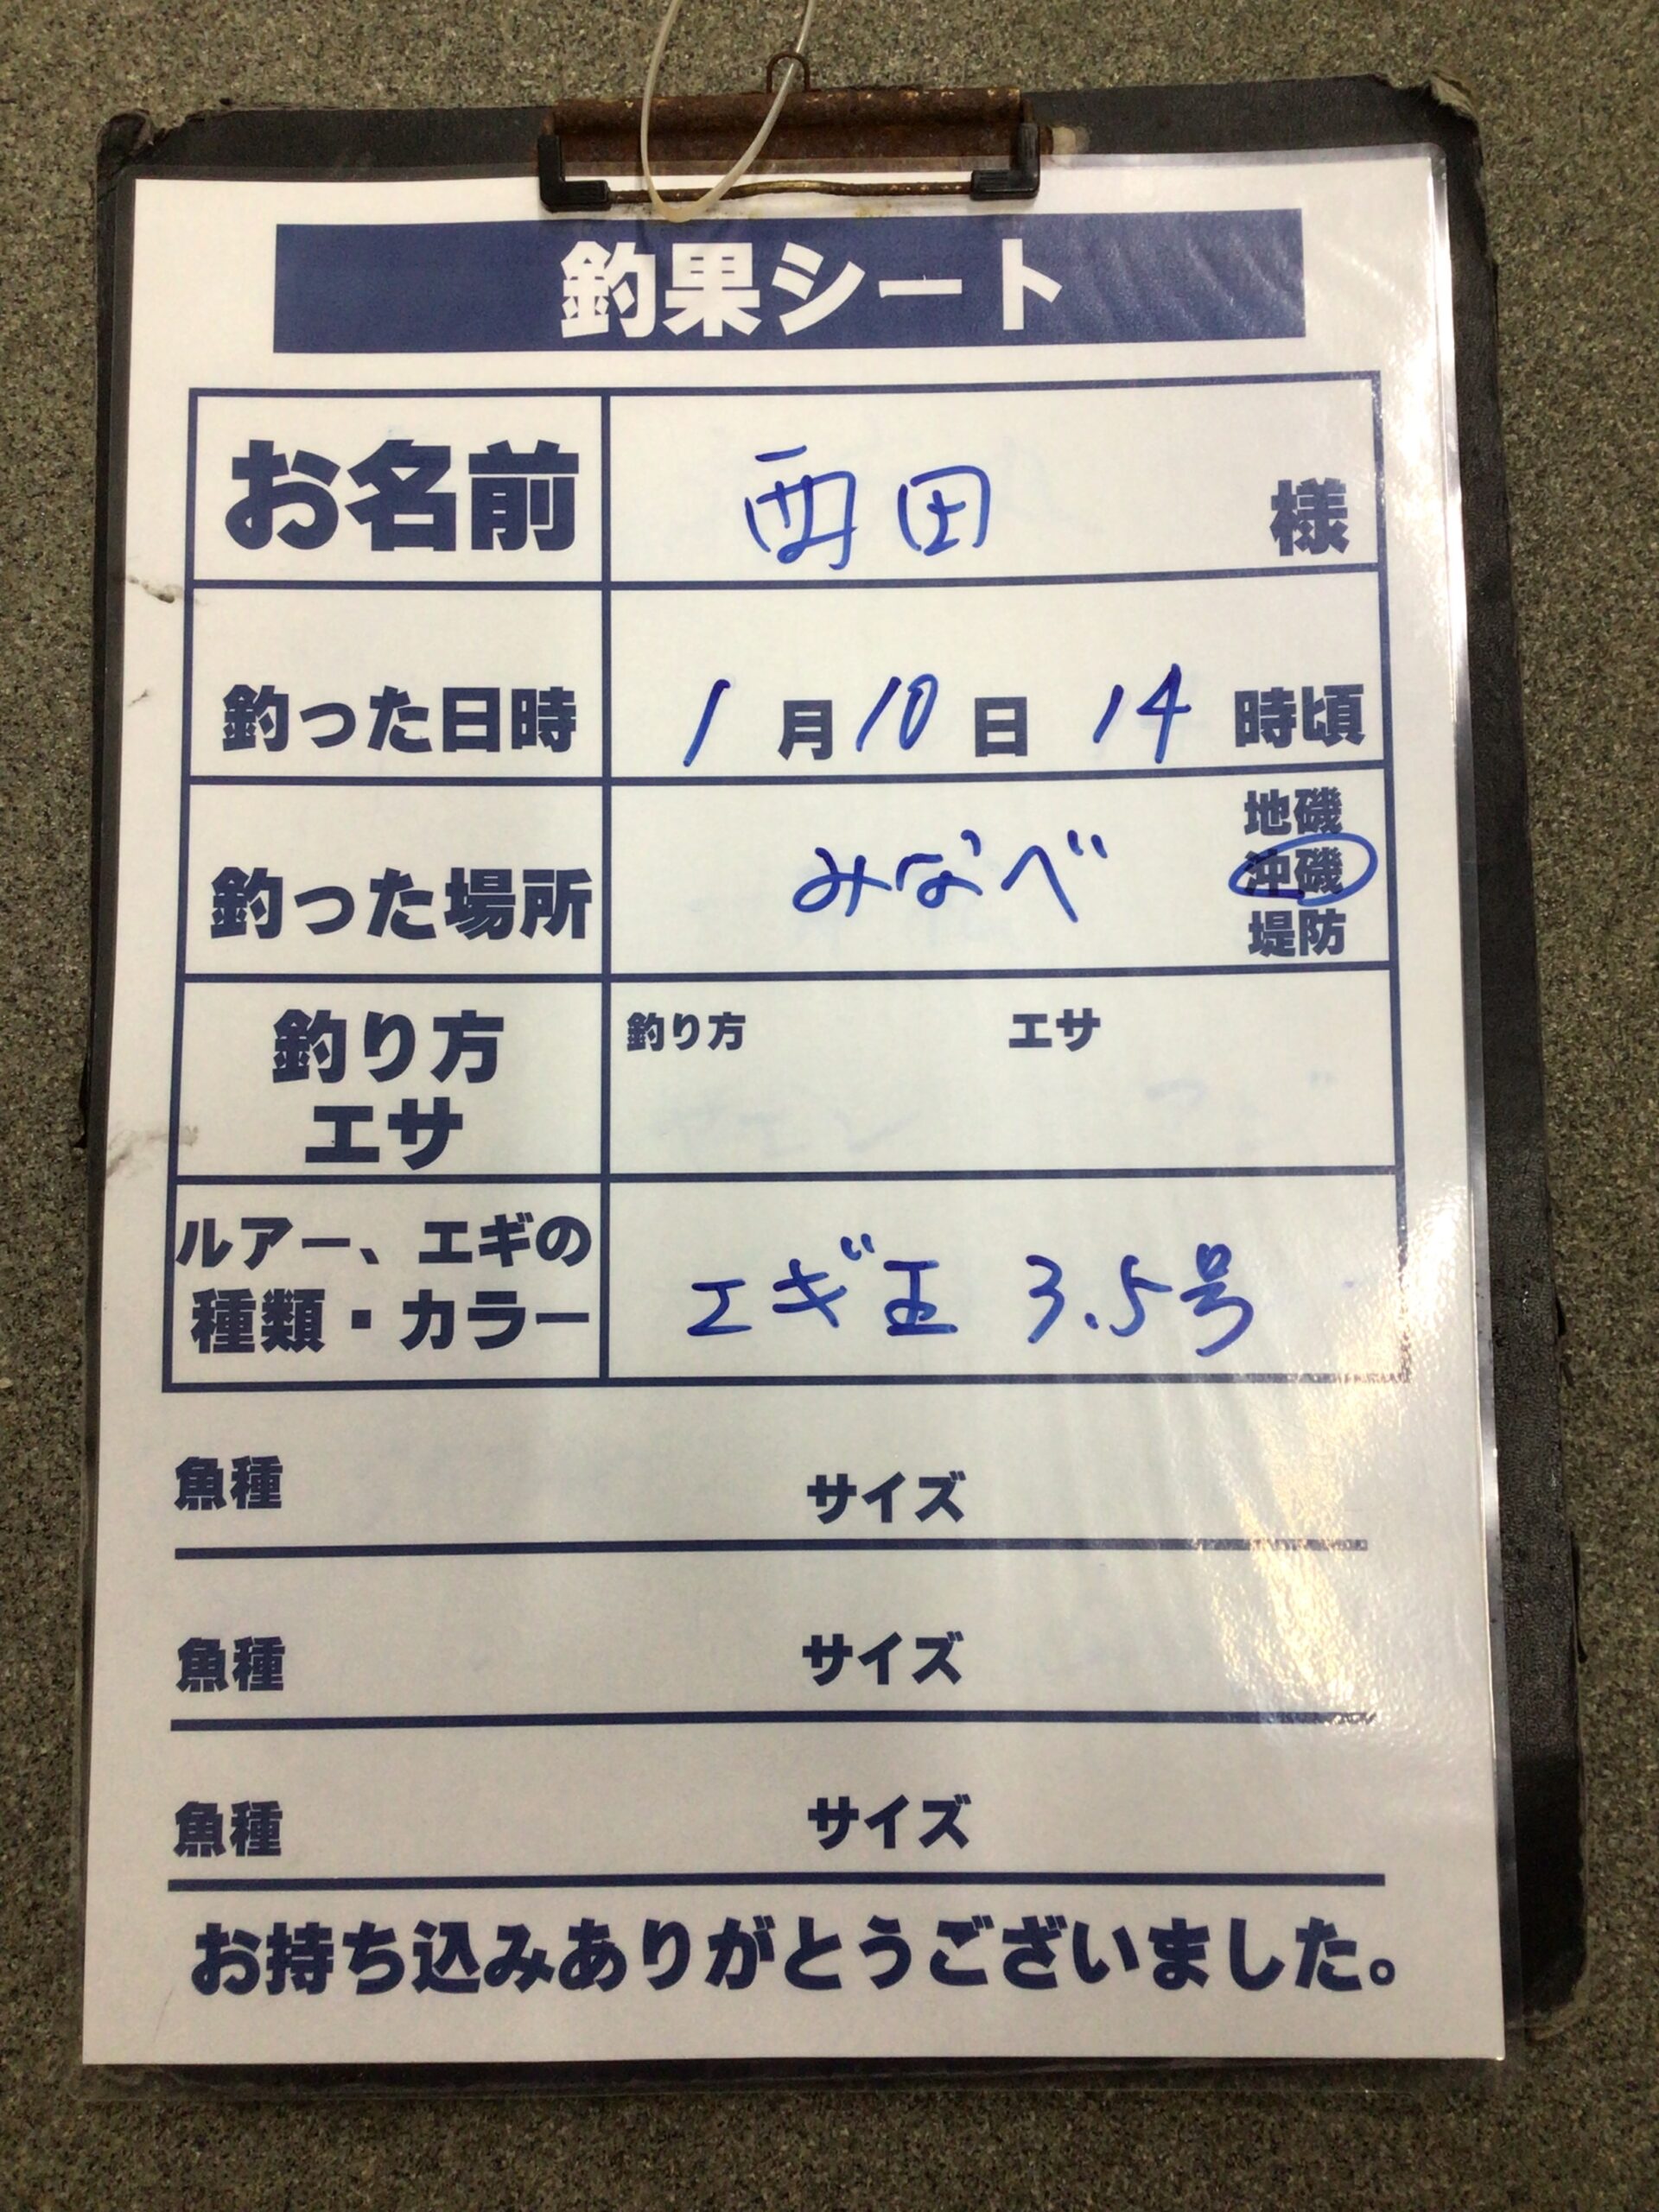 釣果シート
お名前 西田 様
釣った日時 1月10日 14時頃
釣った場所 みなべ 地磯
沖磯
堤防
釣り方 エサ 釣り方 エサ
ルアー、エギの
種類・カラー エギ王 3.5号
魚種 サイズ
魚種 サイズ
魚種 サイズ
お持ち込みありがとうございました。